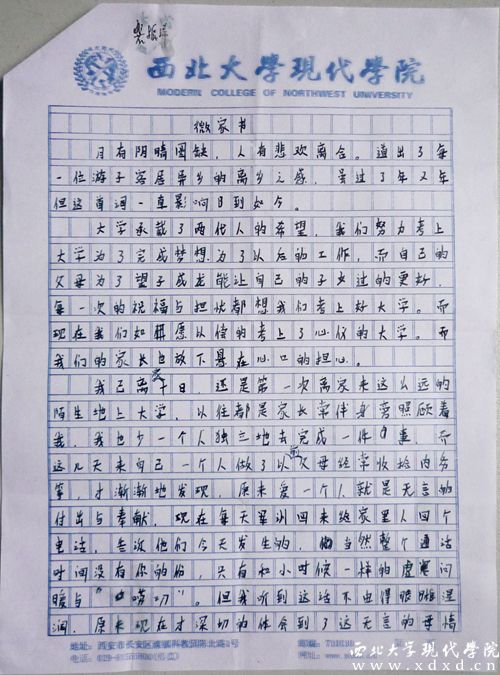 西北大學現代學院
MODERN COLLEGE OF NORTHWEST UNIVERSITY
微家书
月有阴晴圆缺，人有悲欢离合。道出了每
一位游子客居异乡的离乡之感，虽过了年又年
但这首词一直影响到如今。
大学承载了两代人的希望，我们努力考上
大学为了完成梦想为了以后的工作，而自己的
父母为了望子成龙能让自己的子女过的更好，
每一次的祝福与担忧都想我们考上好大学。而
现在我们如耕愿以偿的考上了心仪的大学。而
我们的家长也放下悬在心口的担心。
我已离家十日，还是第一次离家来这么远的
陌生地上大学，以往都是家长常伴身旁照顾着
我，我也少一个人独立地去完成一件事，而
这几天来自己一个人做了以前父母经常收拾内务
等，才渐渐地发现，原来爱一个人就是无言的
付出与奉献，现在每天军训回来给家里人回个
电话，告诉他们今天发生的，当然整个通话
时间没有你的份，只有和小时候一样的虚寒问
暖与“唠叨”。但我听到这话不由得眼眶湿
润，原来现在才深切的体会到了这无言的母情
地址：西安市长安区
电话：029-
邮编：
西北大学现代学院
www.xdxd.cn